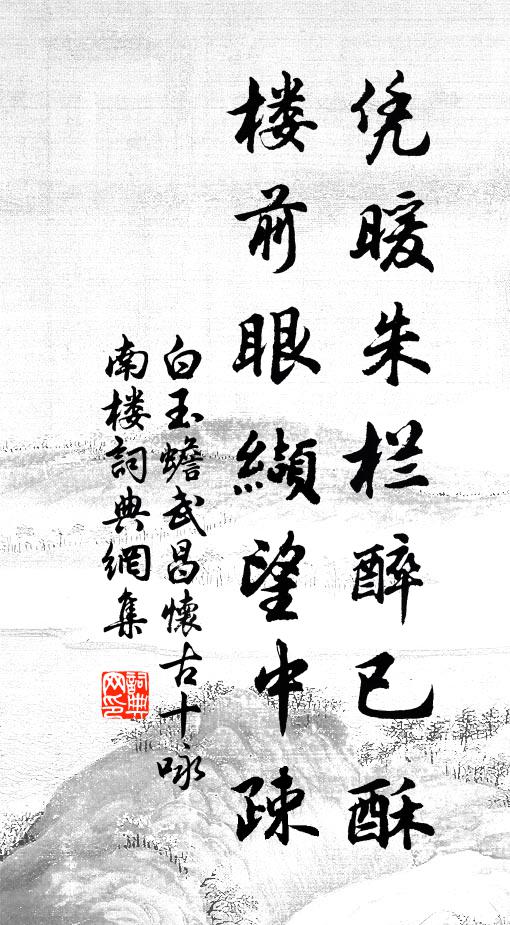 凭暖朱栏醉已酥
楼前眼缬望中疎
白玉蟾武昌懷古十咏
南楼詞典網集
詞典網印